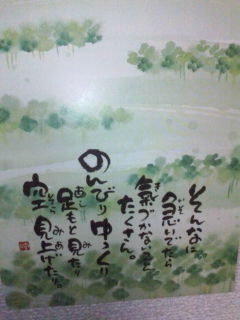 そんなに。
急いでたら
氣づかないこと
たくさん。
のんびりゆっくり
足もと見たり
空見上げたり。